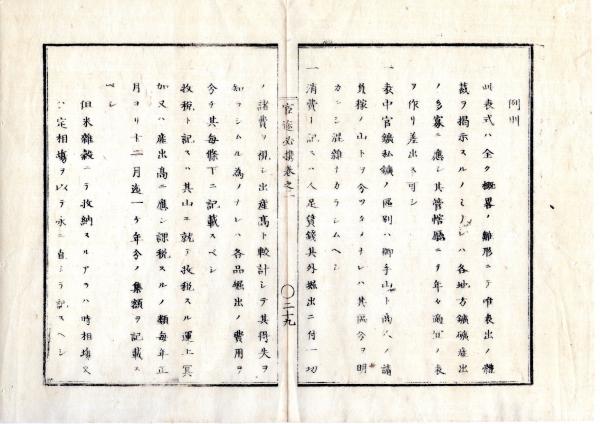 例則
一此表式ハ全ク概畧ノ雛形ニテ唯表出ノ體
裁ヲ掲示スルノミナレハ各地方鑛礦産出
ノ多寡ニ應シ其管轄廳ニテ年々適宜ノ表
ヲ作リ差出ス可シ
一表中官鑛私鑛ノ區別ハ御手山ト商人ノ請
負稼ノ山トヲ分ツタメナレハ其區分ヲ明
カニシ混雜ナカラシムヘシ
一消費ト記スハ人足賃錢其外堀出ニ付一切
官途必携卷之一
〇二十九
ノ諸費ヲ視シ出産高ト較計シテ其得失ヲ
知ラシムル為メナレハ各品堀出ノ費用ヲ
分チ其每條下ニ記載スベシ
收税ト記スハ其山ニ就テ收税スル運上冥
加又ハ産出高ニ應シ課税スルノ類每年正
月ヨリ十二月迄一ケ年分ノ集額ヲ記載ス
ベシ
但米雜穀ニテ收納スルアラハ時相場又
ハ定相場ヲ以テ永ニ直シテ記スヘシ